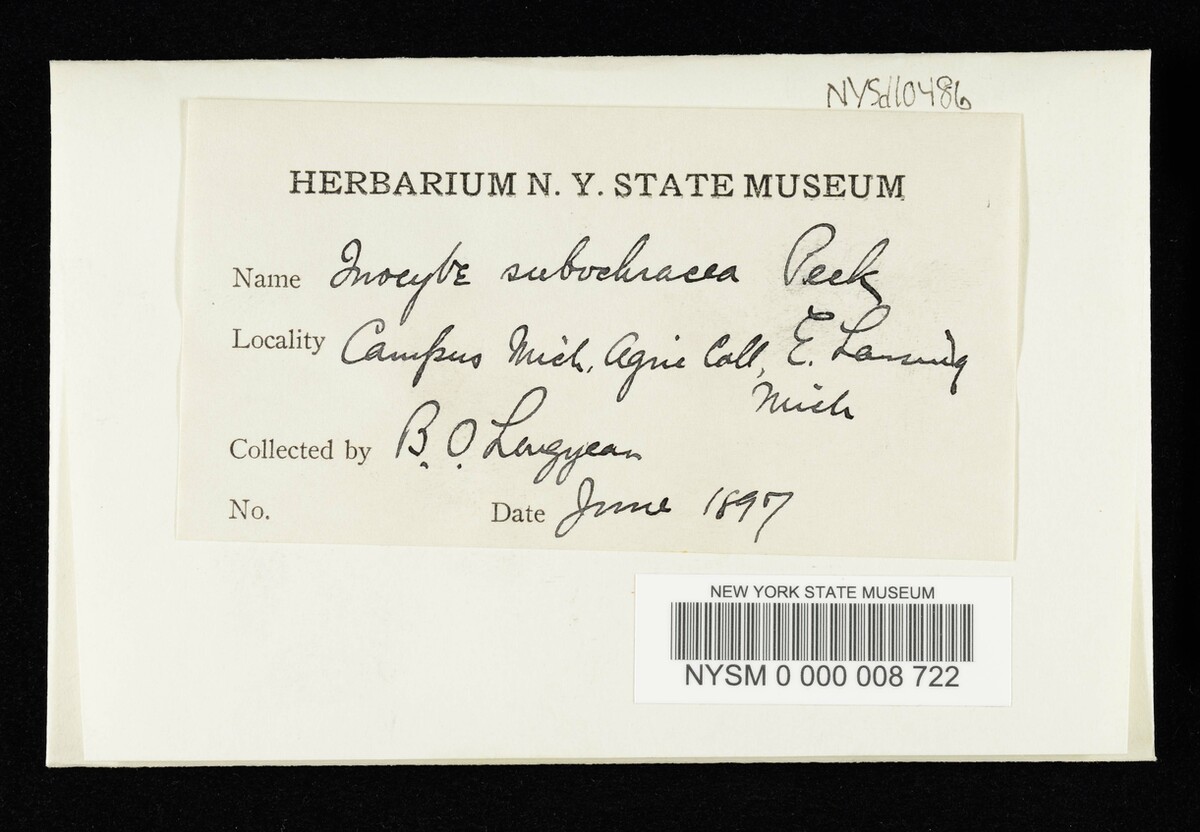 NYSd10486
HERBARIUM N. Y. STATE MUSEUM
Name Inocybe subochracea Peck
Locality Campus Mich. Agric Coll, E. Lansing
Mich
Collected by B. O. Longyear
No. Date June 1897
NEW YORK STATE MUSEUM
NYSM 0 000 008 722